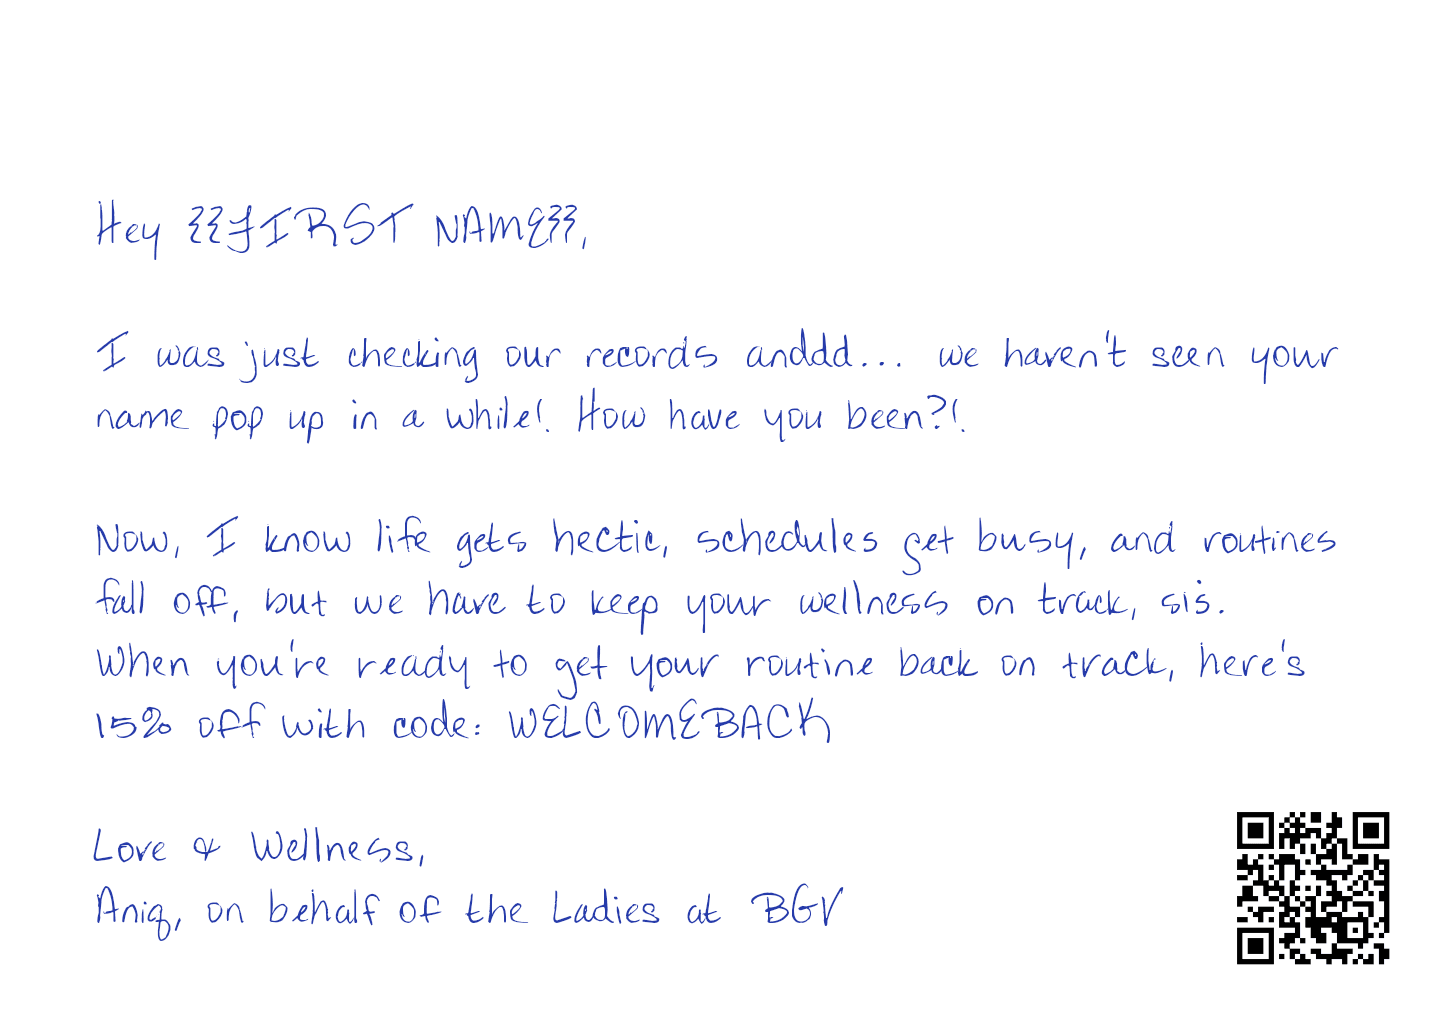 Hey {{FIRST NAME}},
I was just checking our records anddd... we haven't seen your
name pop up in a while! How have you been?!
Now, I know life gets hectic, schedules get busy, and routines
fall off, but we have to keep your wellness on track, sis.
When you're ready to get your routine back on track, here's
15% off with code: WELCOMEBACK
Love & Wellness,
Aniq, on behalf of the Ladies at BGV